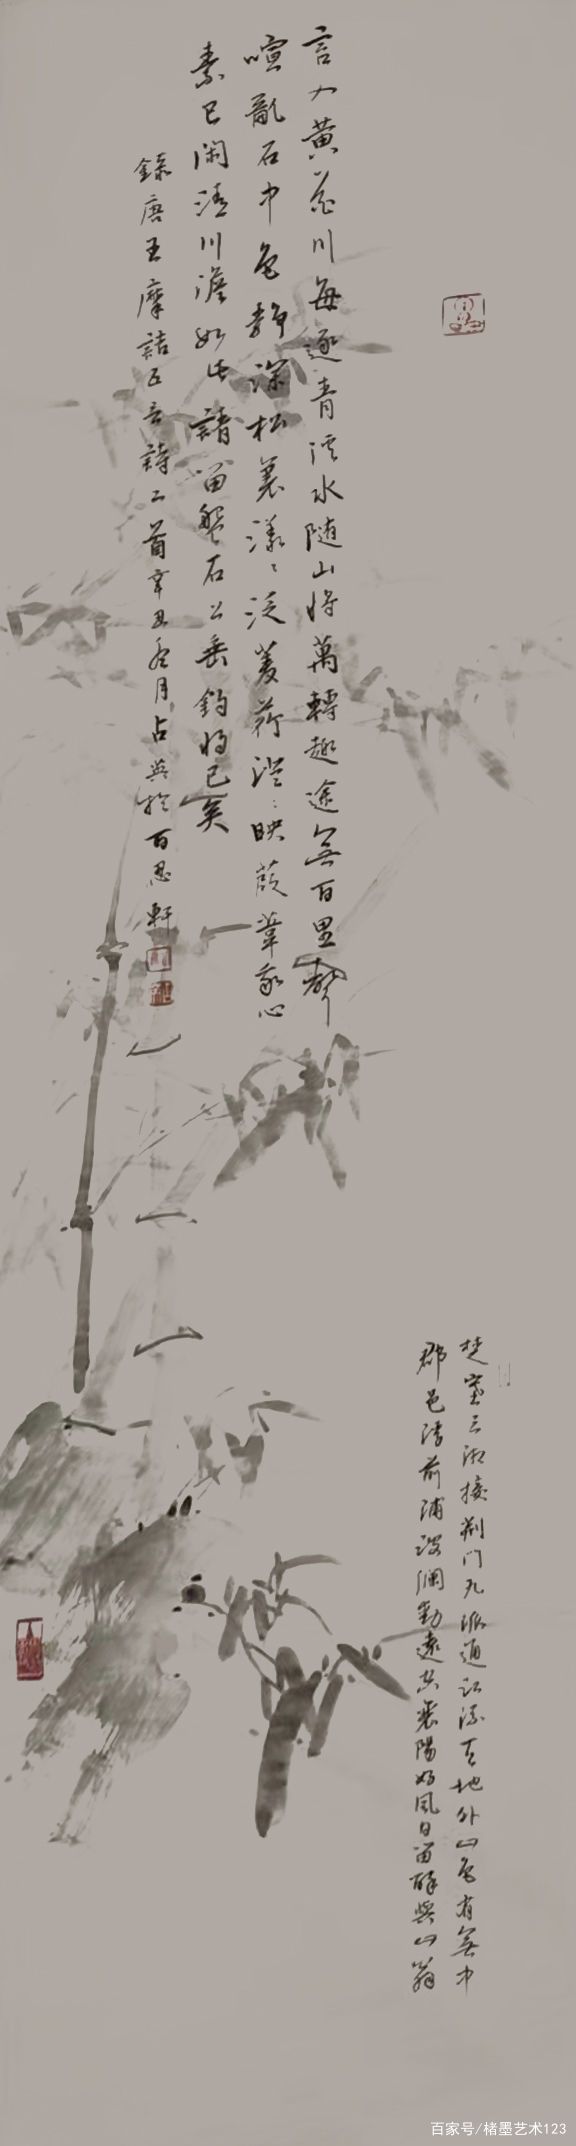 言入黄花川每逐青溪水随山将萬轉趣途無百里聲
喧亂石中色静深松裏漾々泛菱荇澄々映葭葦我心
素已閑清川澹如此請留盤石上垂釣将已矣
錄唐王摩詰五言詩二首辛丑冬月占英於百忍軒
楚塞三湘接荆門九派通江流天地外山色有無中
郡邑浮前浦波瀾動遠空襄陽好風日留醉與山翁
百家号/楮墨艺术123